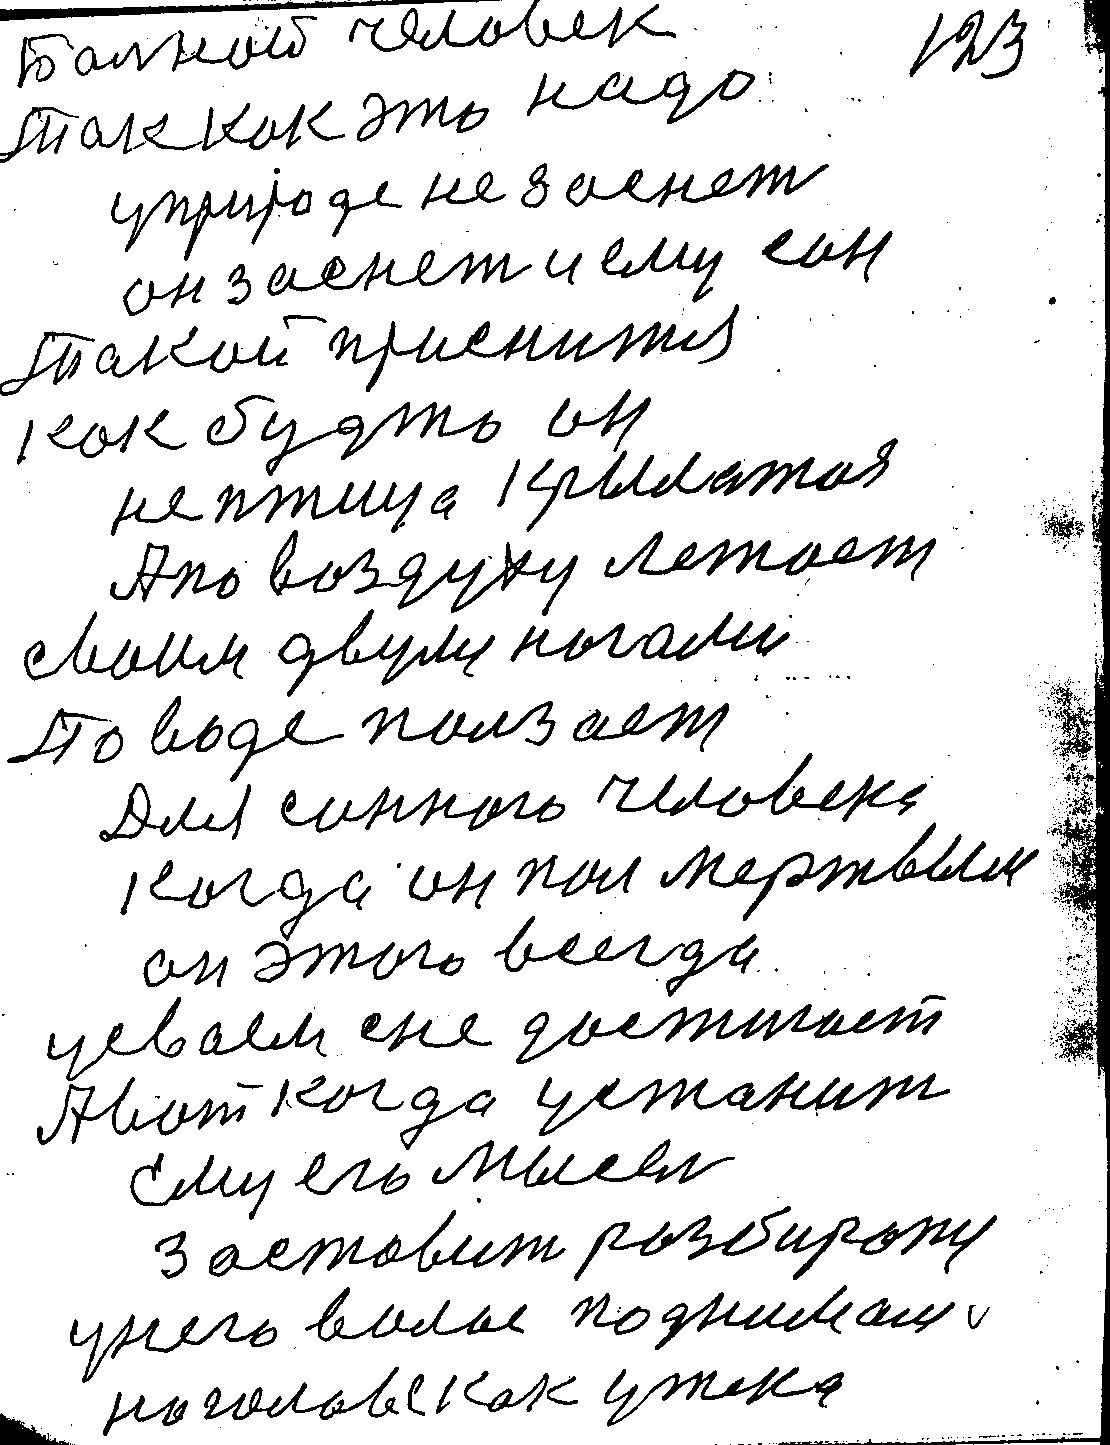 Балной человек 123
Так как это надо
уприроде не заснет
он заснет и ему сон
Такой приснится
как будто он
не птица крылатоя
А по воздуху летает
своим двумя ногами
По воде ползает
Для сонного человека
Когда он пол мертвым
он этого всегда
усваем сне достигает
А вот когда устанит
Ему его мысел
заставит
унего волос
наголове как ужека